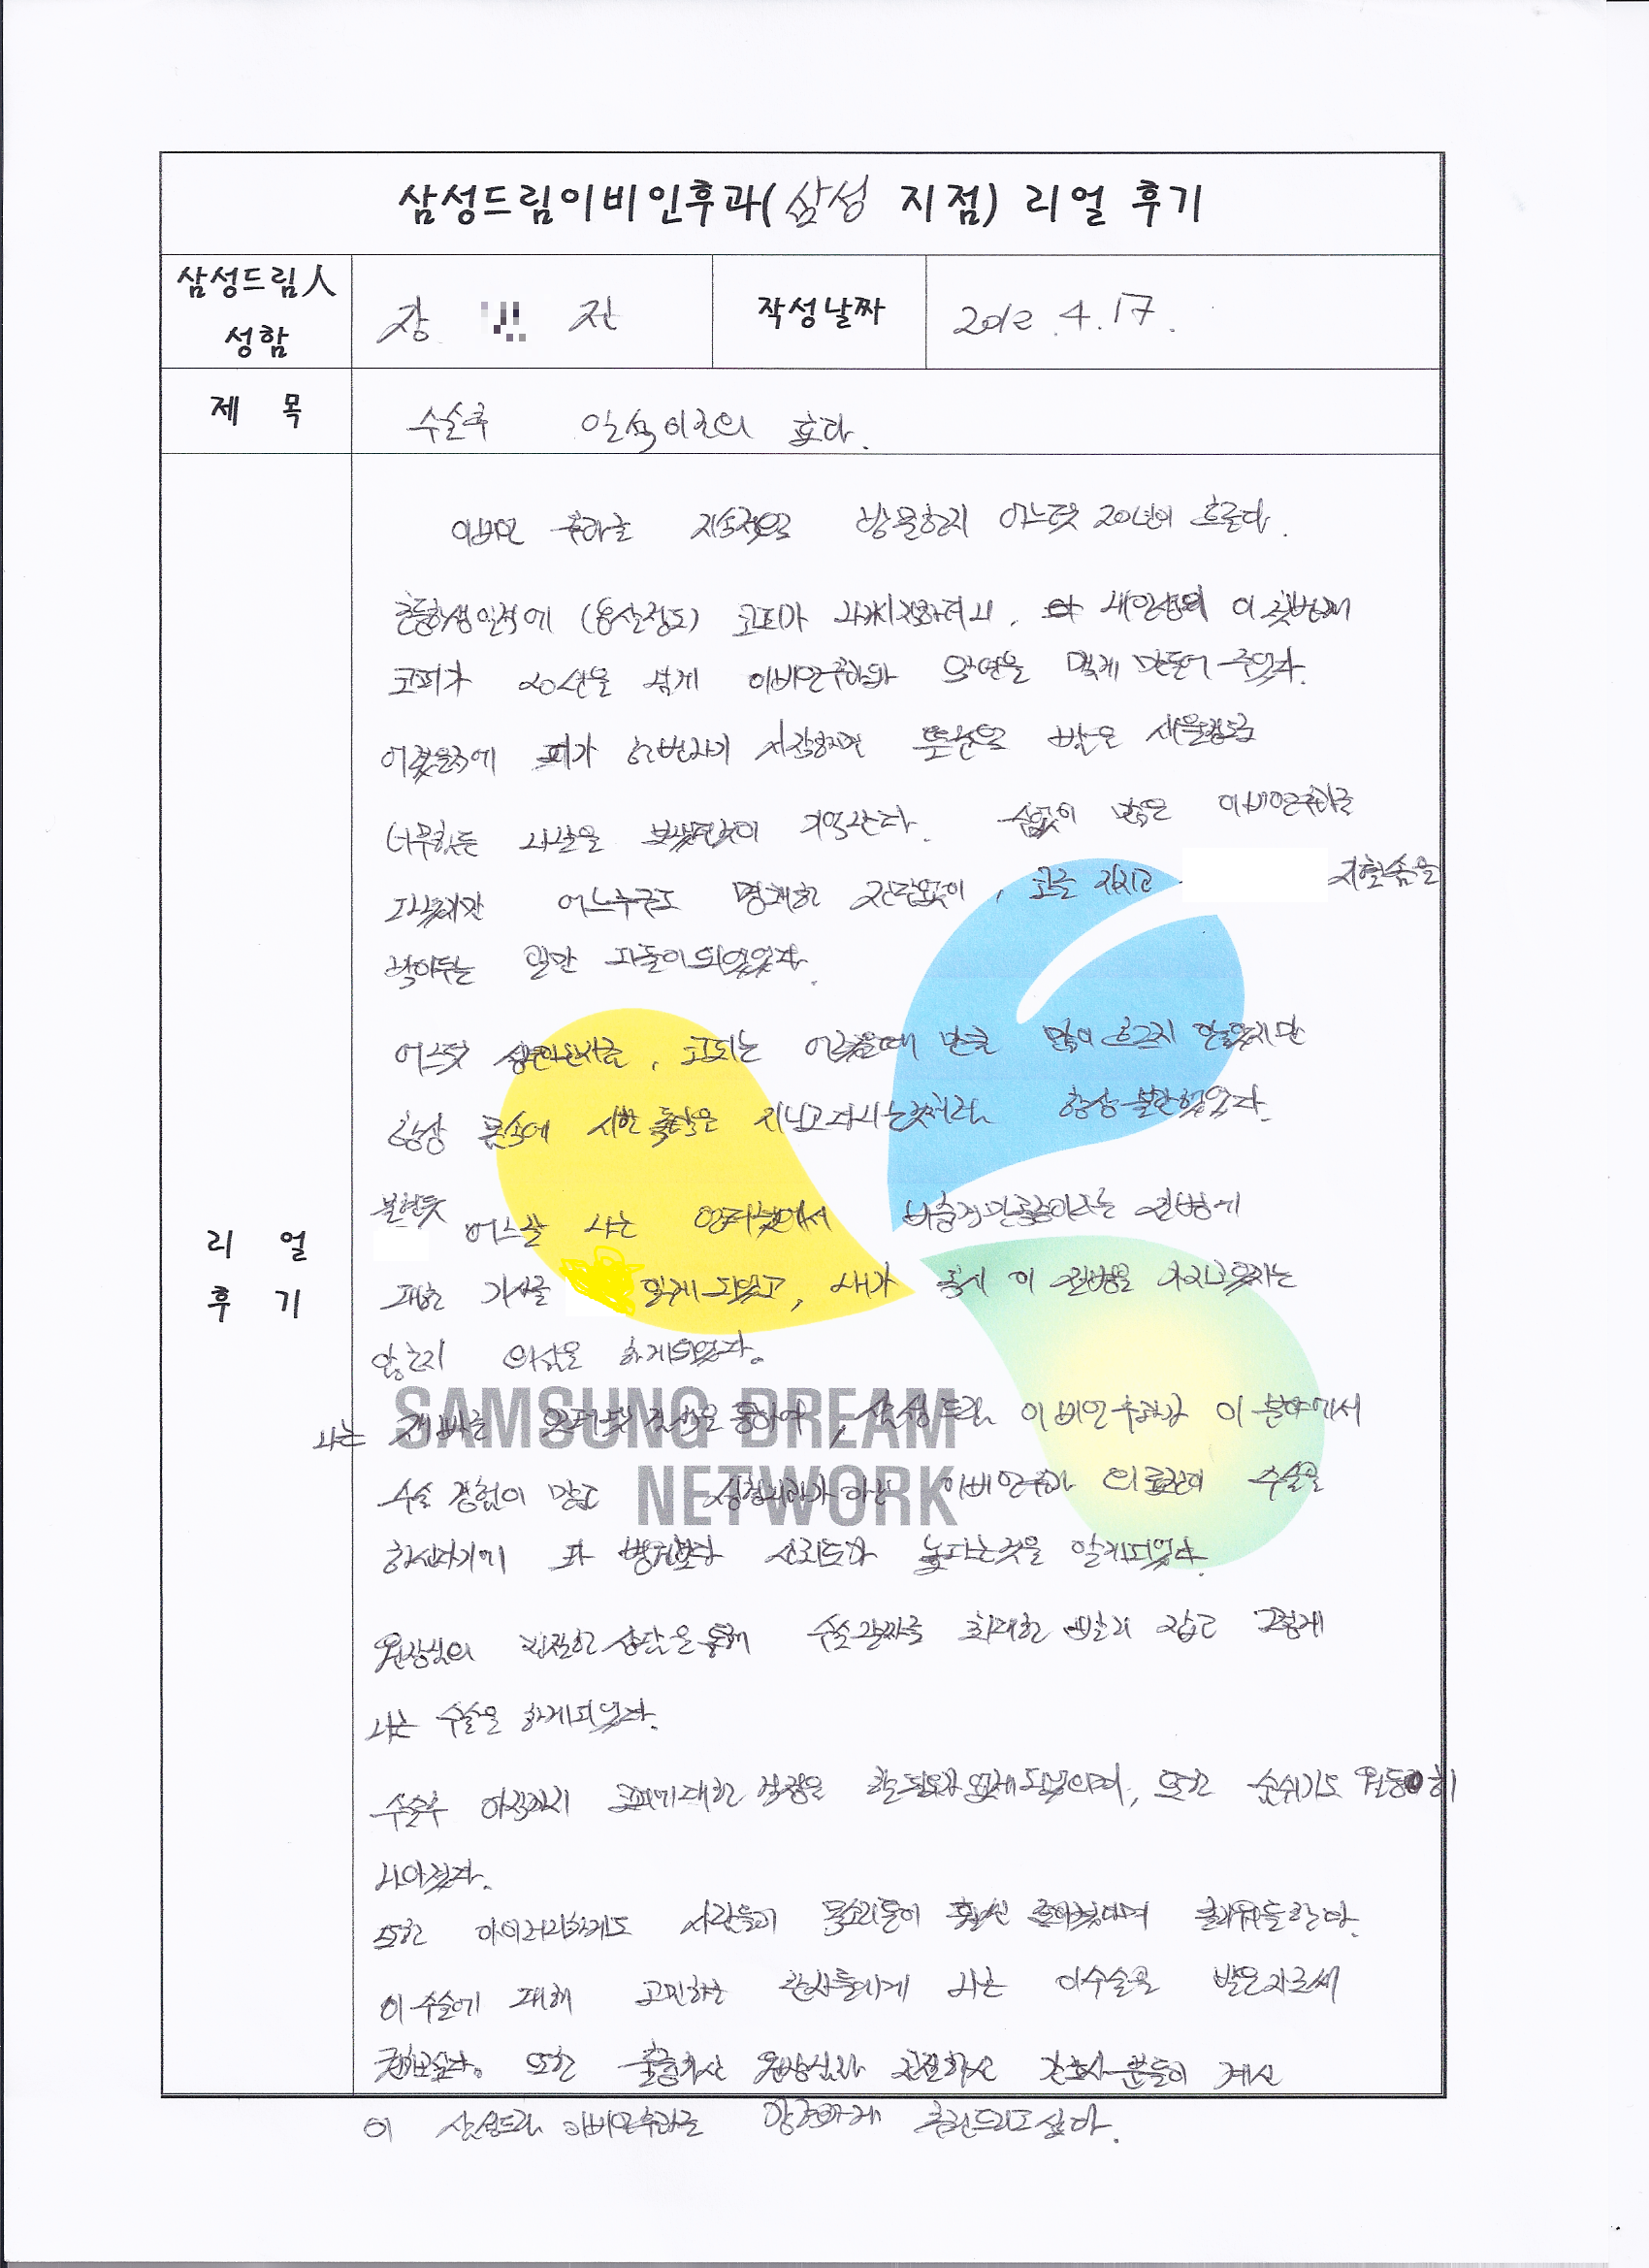 삼성드림이비인후과(삼성 지점) 리얼 후기
삼성드림人
성함
장 진
작성날짜
2012.4.17.
제 목
수술후 일석이조의 효과.
이비인후과를 지속적으로 방문한지 어느덧 20년이 흐른다.
초등학생인적에 (8살정도) 코피가 나기 시작하더니, 내인생의 이 첫번째
코피가 20년을 넘게 이비인후과와 악연을 맺게 만들어 주었다.
어렸을적에 피가 한번나기 시작하면 밤을 새울정도로
너무힘든 나날을 보냈던것이 기억난다. 수없이 많은 이비인후과를
다녔지만 어느누구도 명쾌한 진단없이, 코를 지지고 지혈솜을
박아두는 일만 되었었다.
어느덧 성인이된지금, 코피는 어렸을때 만큼 많이 흐르지 않았지만
항상 몸속에 시한폭탄을 지니고다니는것처럼 항상 불안했었다.
불현듯 어느날 나는 인터넷에서 비중격만곡증이라는 질병에
대한 기사를 읽게되었고, 내가 혹시 이 질병을 가지고있지는
않는지 의심을 하게되었다.
나는 인터넷 검색을 통하여, 삼성드림 이비인후과가 이 분야에서
수술 경험이 많고 이비인후과 의료진이 수술을
하신다기에 타 병원보다 신뢰도가 높다는것을 알게되었다.
원장님의 친절한 상담을 통해 수술날짜를 최대한 빨리 잡고 그렇게
나는 수술을 하게되었다.
수술후 아직까지 코피에대한 걱정을 할필요가 없게되었으며, 또한 숨쉬기도 월등히
나아졌다.
또한 아이러니하게도 사람들이 목소리톤이 훨씬 좋아졌다며 한다.
이 수술에 대해 고민하는 환자들에게 나는 이수술을 받은자로써
권하고싶다. 또한 출중하신 원장님과 친절하신 간호사분들이 계신
이 삼성드림 이비인후과를 강력하게 추천드리고싶다.
SAMSUNG DREAM
NETWORK
리 얼
후 기